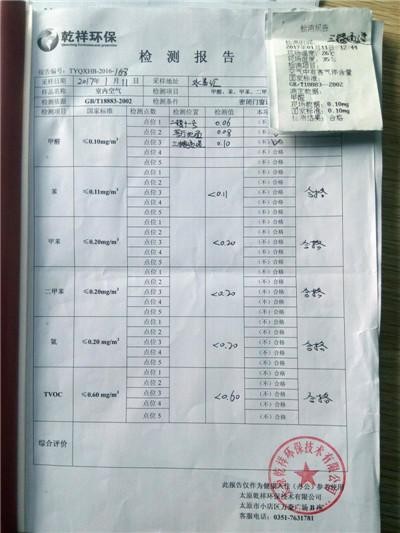 乾祥环保
检 测 报 告
报告编号: TYQXHB-2016-163
采样日期 2017年1月11日 采样地址
样品名称 室内空气 甲醛、苯、甲苯、二甲
检测依据 GB/T18883-2002 检测条件 密闭门窗
检测项目 国家标准 检测点数 检测位置 检测值
甲醛 ≤0.10mg/m³
点位 1 0.06 (不)合格
点位 2 0.08 (不)合格
点位 3 0.10 (不)合格
点位 4 (不)合格
点位 5 (不)合格
苯 ≤0.11mg/m³ <0.11 合格
点位 1 (不)合格
点位 2 (不)合格
点位 3 (不)合格
点位 4 (不)合格
点位 5 (不)合格
甲苯 ≤0.20mg/m³ <0.20 合格
点位 1 (不)合格
点位 2 (不)合格
点位 3 (不)合格
点位 4 (不)合格
点位 5 (不)合格
二甲苯 ≤0.20mg/m³ <0.20 合格
点位 1 (不)合格
点位 2 (不)合格
点位 3 (不)合格
点位 4 (不)合格
点位 5 (不)合格
氨 ≤0.20 mg/m³ <0.20 合格
点位 1 (不)合格
点位 2 (不)合格
点位 3 (不)合格
点位 4 (不)合格
点位 5 (不)合格
TVOC ≤0.60 mg/m³ <0.60 合格
点位 1 (不)合格
点位 2 (不)合格
点位 3 (不)合格
点位 4 (不)合格
点位 5 (不)合格
综合评价
此报告仅作为健康入住(办公)参考使用
太原乾祥环保技术有限公司
太原市小店区万泰广场B座
客服电话: 0351-7631781
检测报告
2017年01月11日 12:44
现场温度: 26℃
现场湿度: 35%
检测项目:
空气中有害气体含量
国家标准:
GB/T18883-2002
测定数据:
甲醛
现场数据: 0.10mg
国家标准: 0.10mg
检测结果: 合格